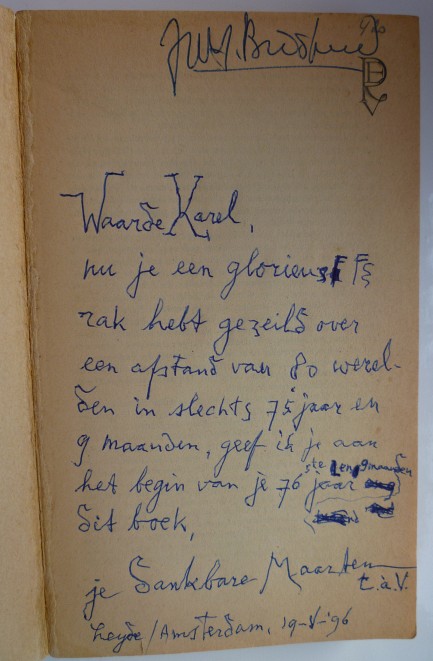 Waarde Karel,
nu je een glorieus
rak hebt gezeild over
een afstand van 80 werel-
den in slechts 75 jaar en
9 maanden, geef ik je aan
ste
het begin van je 76 jaar
dit boek,
je dankbare Maarten
t.à.V.
Leyde/Amsterdam, 19-V-'96